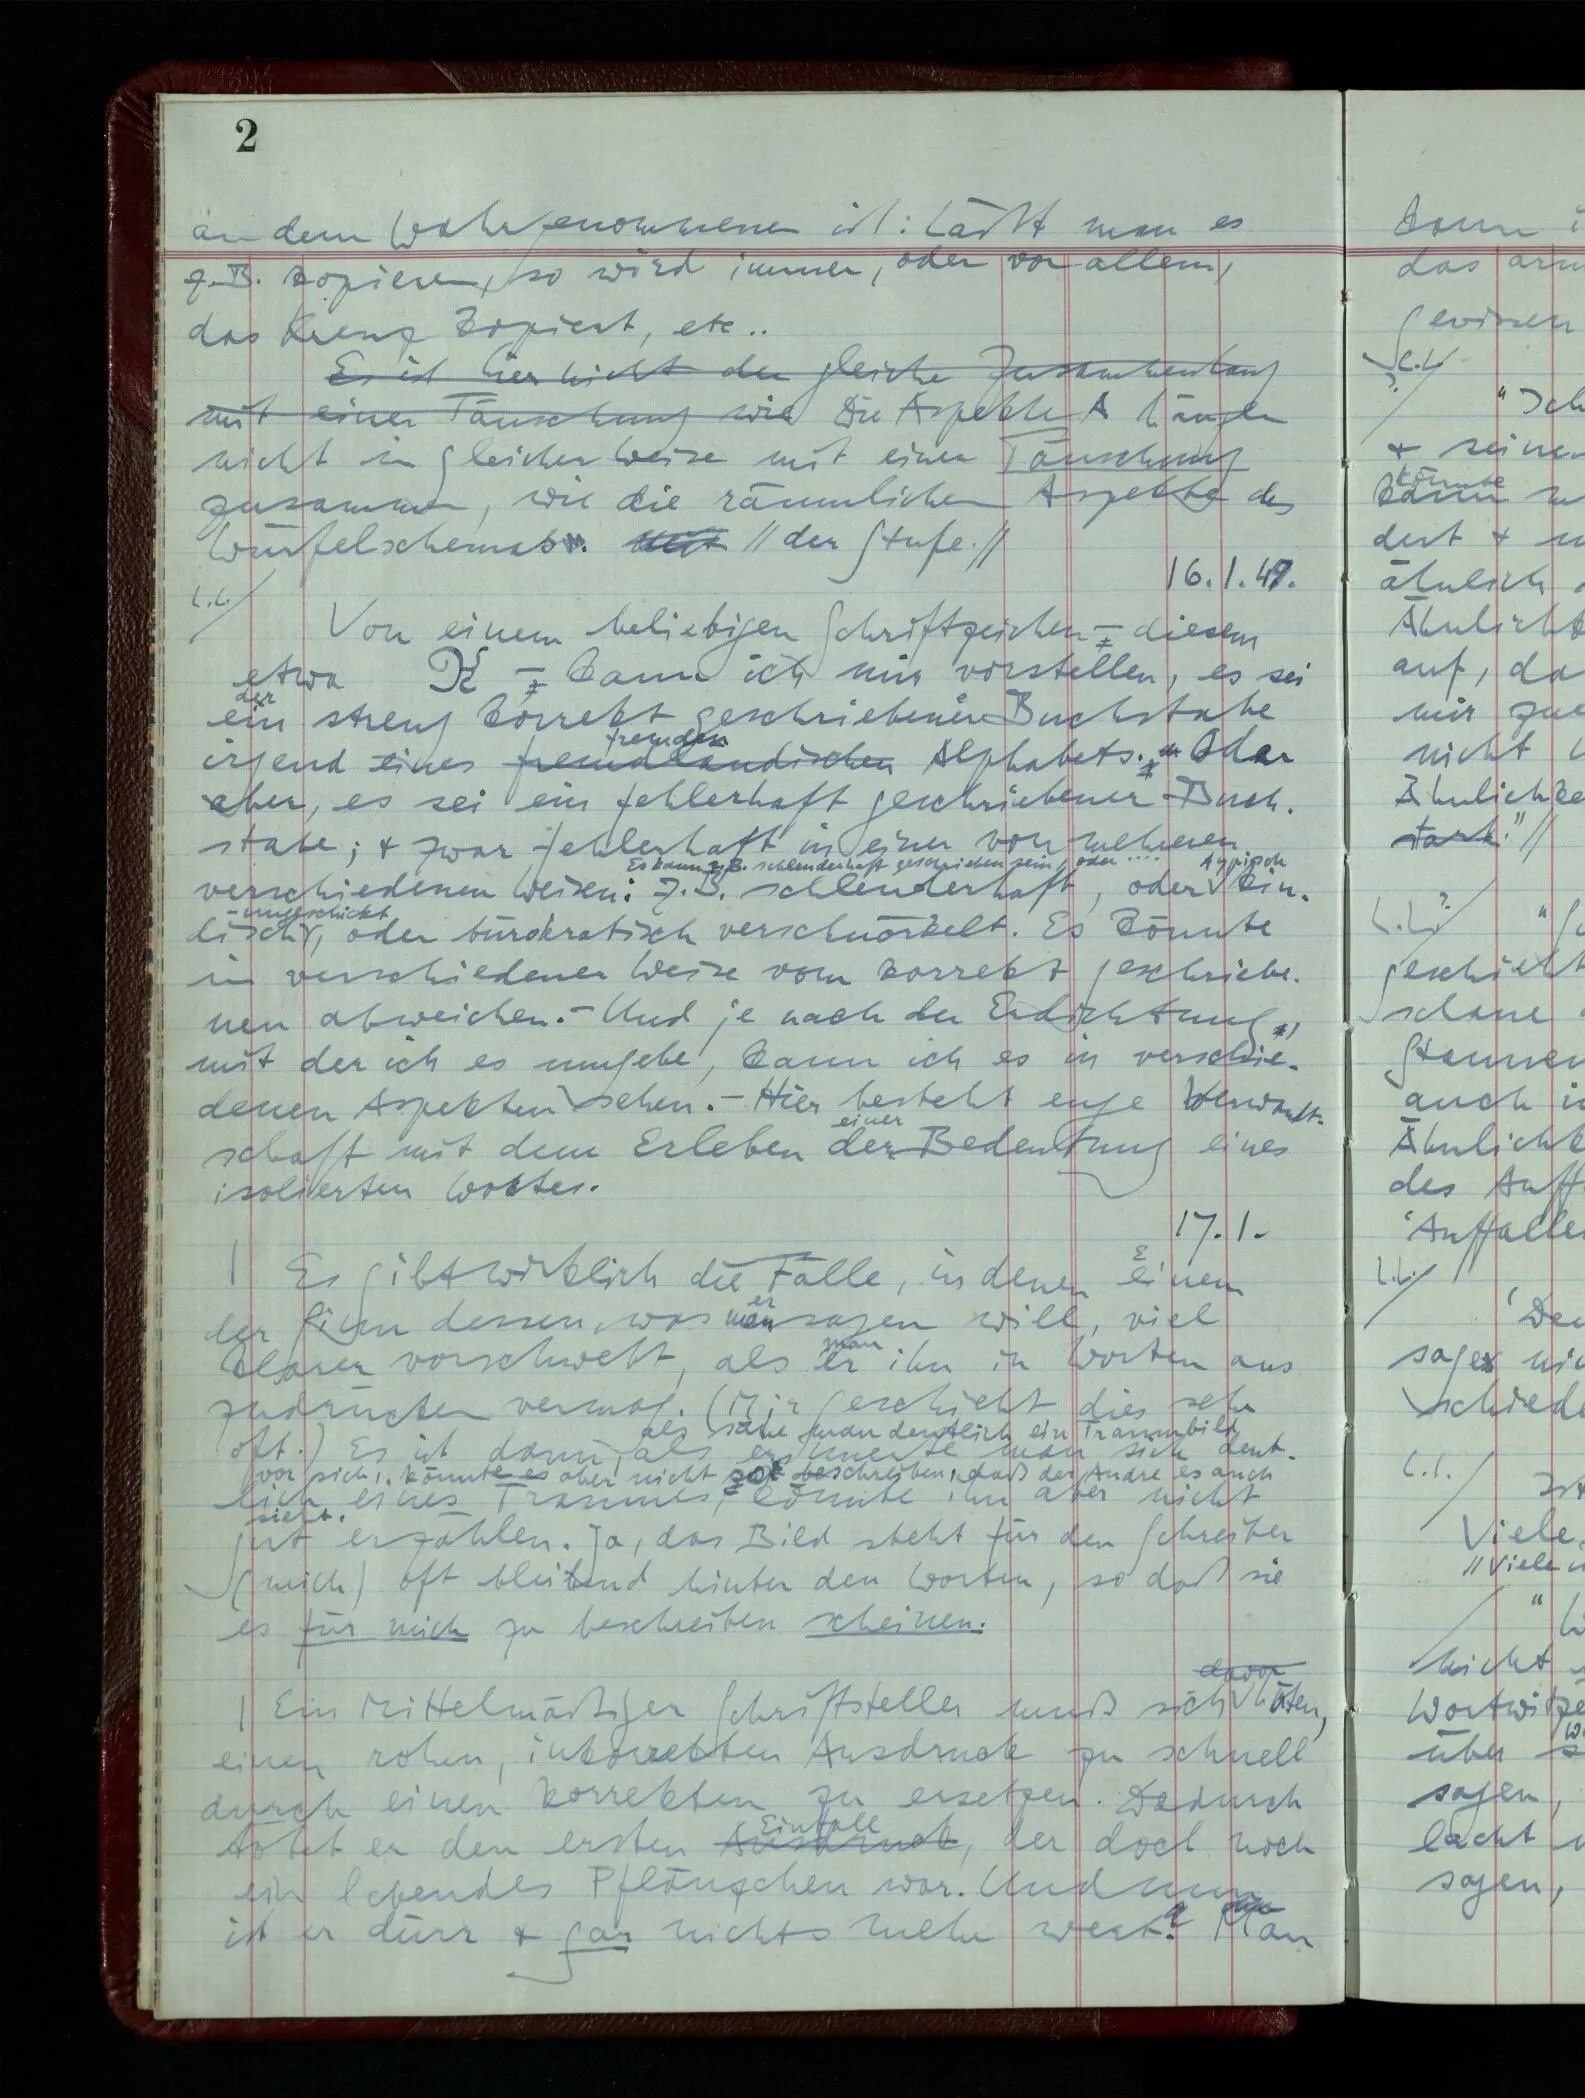 2
an dem Wahrgenommenen ist: Läßt man es
z.B. kopieren, so wird immer, oder vor allem,
das Kreuz kopiert, etc..
Es ist hier nicht der gleiche Zusammenhang
mit einer Täuschung wie Die Aspekte A hängen
nicht in gleicher Weise mit einer Täuschung
zusammen, wie die räumlichen Aspekte des
Würfelschemas. // der Stufe. //
16.1.49.
Von einem beliebigen Schriftzeichen – diesem
etwa – kann ich mir vorstellen, es sei
der
ein streng korrekt geschriebener Buchstabe
fremden
irgend eines fremdländischen Alphabets. Oder
aber, es sei ein fehlerhaft geschriebener Buch-
stabe; + zwar fehlerhaft in einer von mehreren
Es kann z.B. schlenderhaft geschrieben sein, oder .... typisch
verschiedenen Weisen: z.B. schlenderhaft, oder kin-
ungeschickt
disch, oder bürokratisch verschnörkelt. Es könnte
in verschiedener Weise vom korrekt geschriebe-
nen abweichen. – Und je nach der Erdichtung,
mit der ich es umgebe, kann ich es in verschie-
denen Aspekten sehen. – Hier besteht enge Verwandt-
einer
schaft mit dem Erleben der Bedeutung eines
isolierten Wortes.
17.1.
| Es gibt wirklich die Fälle, in denen Einem
er
der Sinn dessen, was man sagen will, viel
man
klarer vorschwebt, als er ihn in Worten aus
zudrücken vermag. (Mir geschieht dies sehr
als sähe man deutlich ein Traumbild
oft.) Es ist dann, als erinnerte man sich deut-
vor sich, könnte es aber nicht so beschreiben, daß der Andre es auch
lich eines Traumes, könnte ihn aber nicht
sieht.
gut erzählen. Ja, das Bild steht für den Schreiber
(mich) oft bleibend hinter den Worten, so daß sie
es für mich zu beschreiben scheinen.
davor
| Ein Mittelmäßiger Schriftsteller muß sich hüten,
einen rohen, inkorrekten Ausdruck zu schnell
durch einen korrekten zu ersetzen. Dadurch
Einfall
tötet er den ersten Ausdruck, der doch noch
ein lebendes Pflänzchen war. Und nun
ist er dürr + gar nichts mehr wert. Man
kann
das
gewissen
"Ich
+ seinen
könnte
kann
dert +
ähnlich
auf, da
mir
nicht
stark." //
geschieht
schaue
Staunen
auch
des
'Auffallen
'Den
sagen
Viele
"Viele
nicht
Wortwitze
über
sagen,
lacht
sagen,